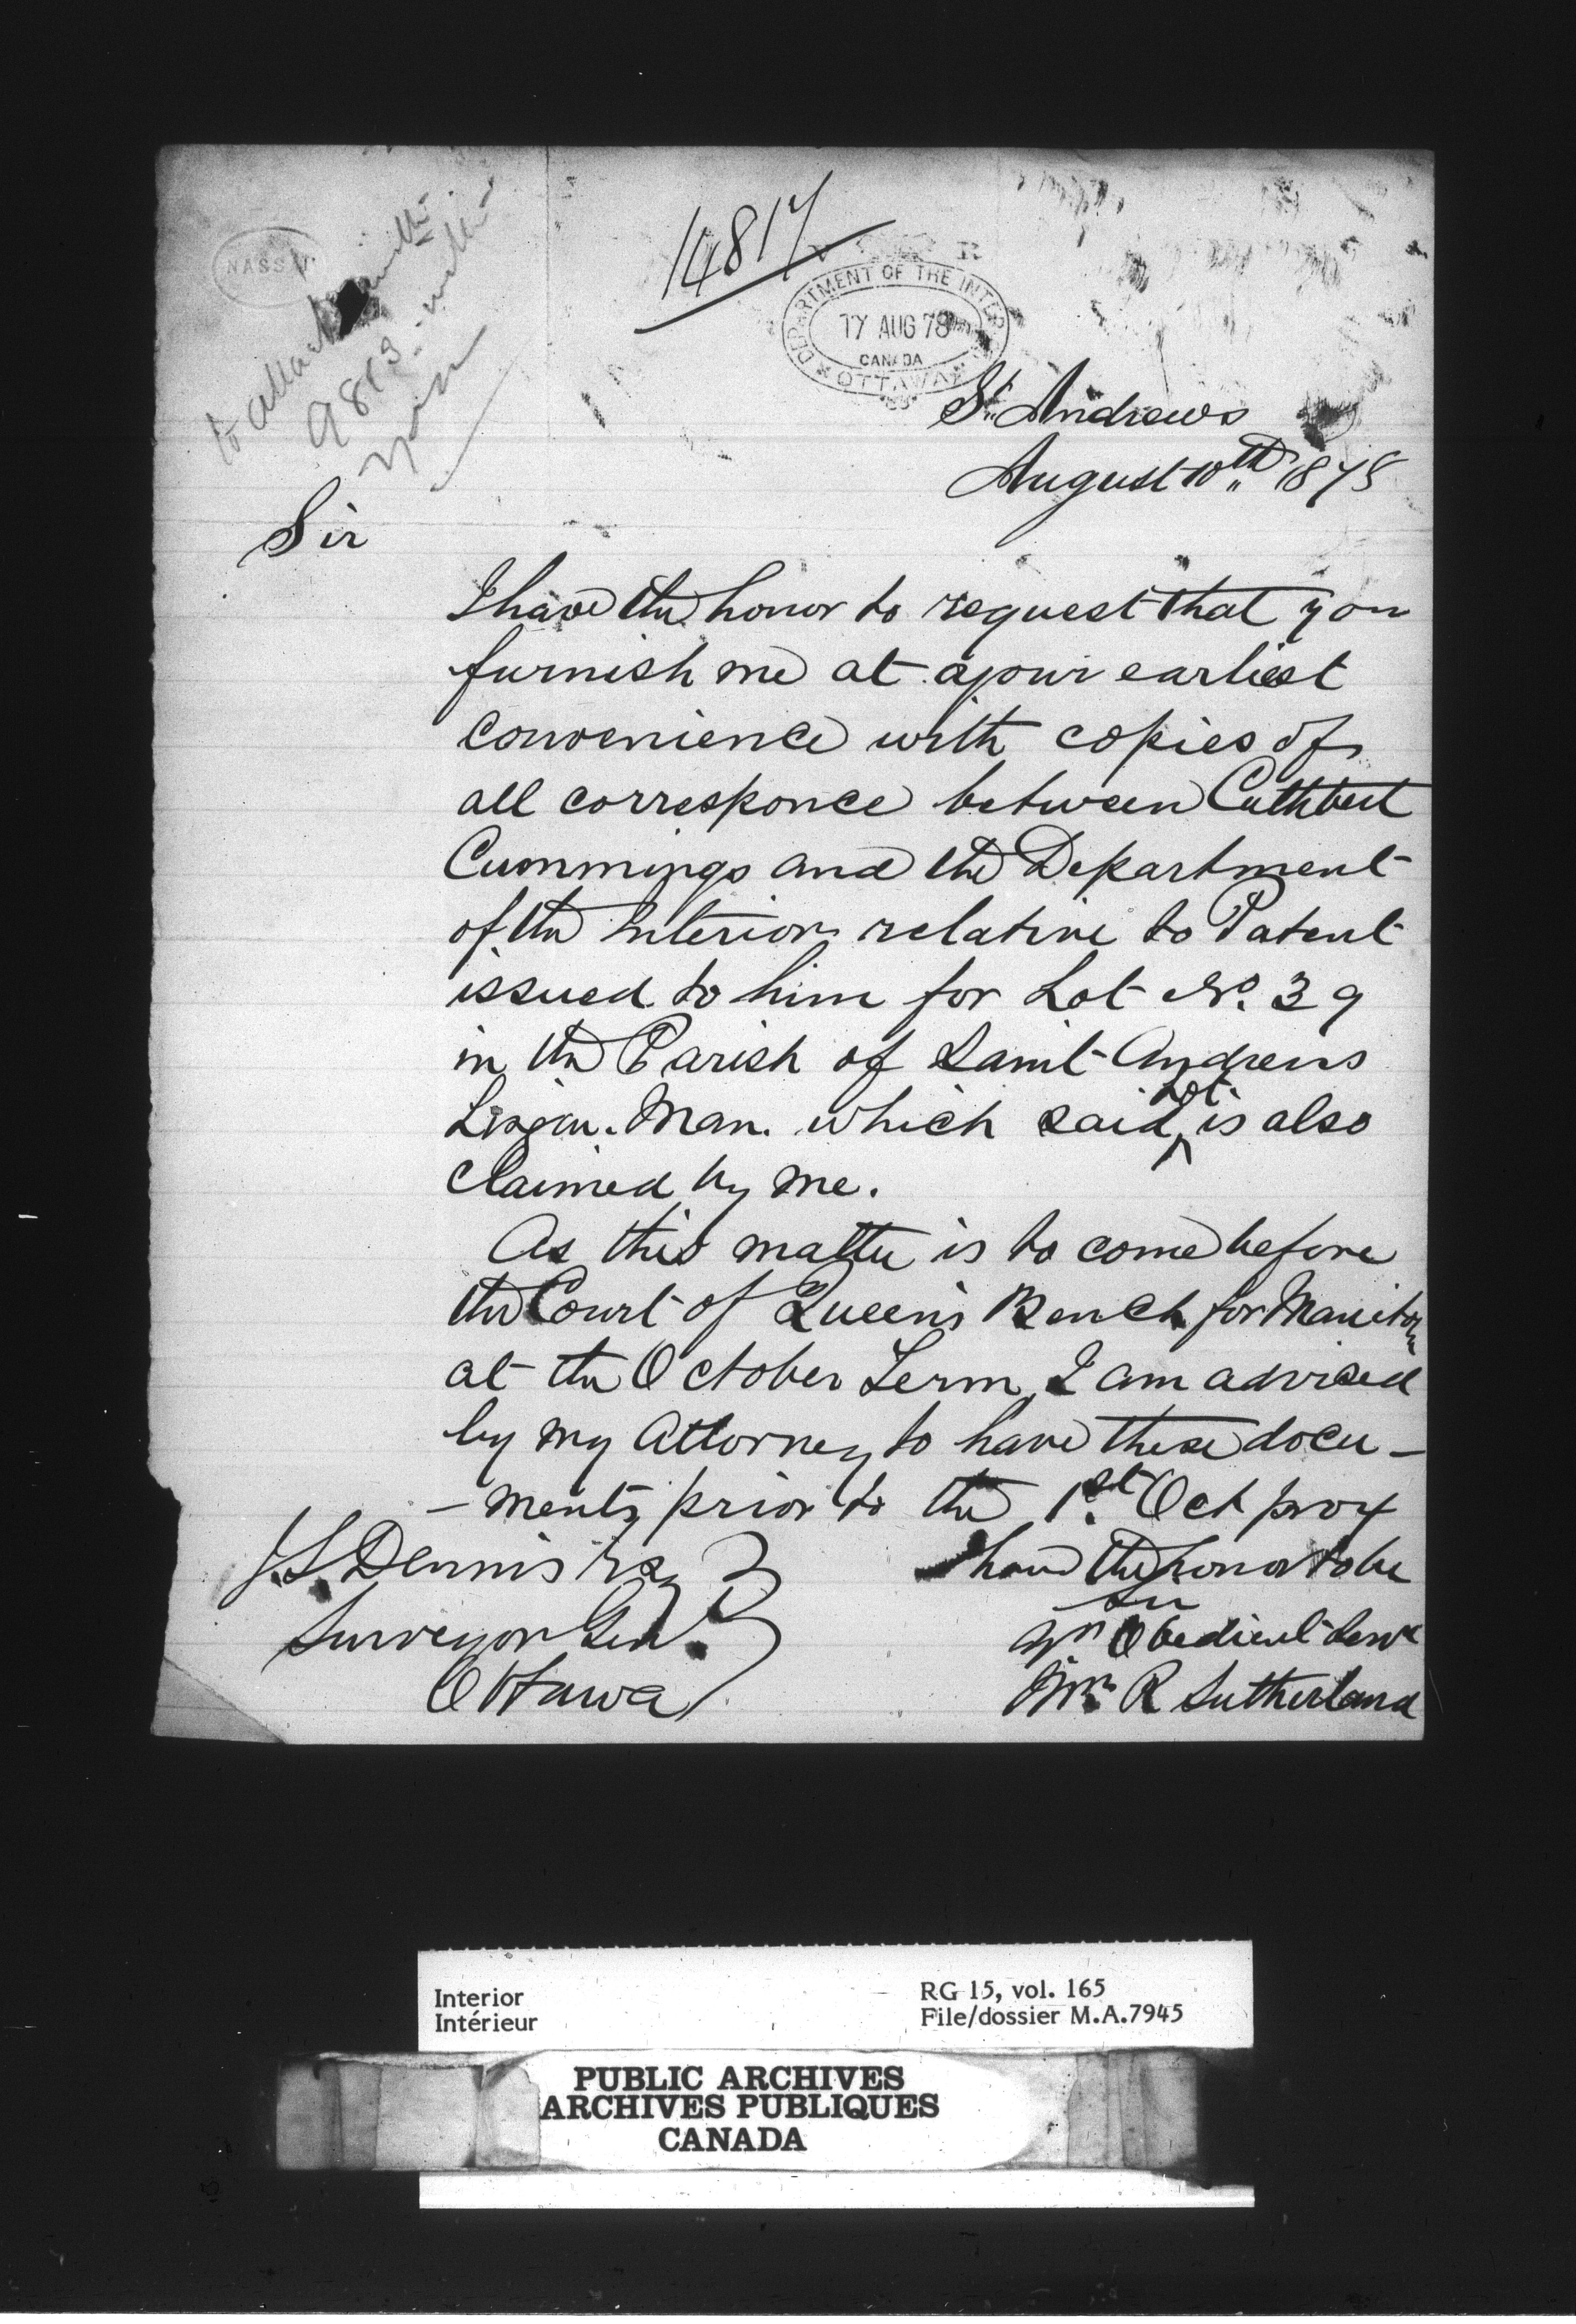 14817
NASSAU
DEPARTMENT OF THE INTERIOR
17 AUG 78
CANADA
OTTAWA
to attach
9813
St. Andrews
August 10th 1878
Sir
I have the honor to request that you
furnish me at your earliest
convenience with copies of
all corresponce between Cuthbert
Cummings and the Department
of the Interior relative to Patent
issued to him for Lot No. 39
in the Parish of Saint Andrews
Lisgar. Man. which said lot is also
claimed by me.
As this matter is to come before
the Court of Queen's Bench for Manitoba
at the October Term, I am advised
by my Attorney to have these docu-
-ments prior to the 1st. Oct prox
I have the honor to be
Sir
Yr Obedient Servt
Wm. R Sutherland
J.S. Dennis Esq
Surveyor Genl.
Ottawa
Interior
Intérieur
RG 15, vol. 165
File/dossier M.A.7945
PUBLIC ARCHIVES
ARCHIVES PUBLIQUES
CANADA